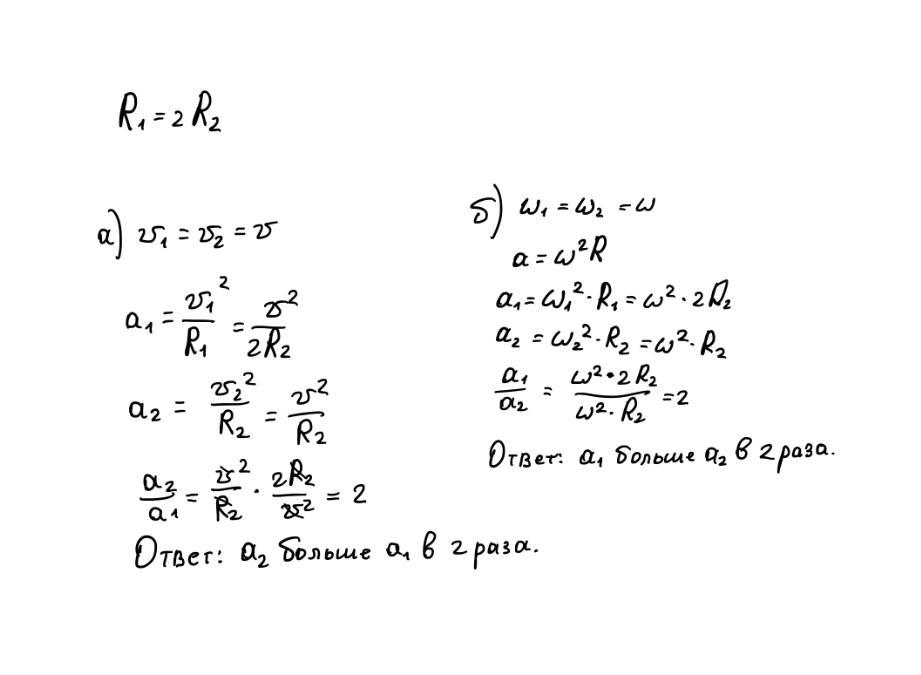 R₁ = 2 R₂
а) v₁ = v₂ = v
a₁ = v₁²/R₁ = v²/2R₂
a₂ = v₂²/R₂ = v²/R₂
a₂/a₁ = v²/R₂ · 2R₂/v² = 2
Ответ: a₂ больше a₁ в 2 раза.
б) ω₁ = ω₂ = ω
a = ω²R
a₁ = ω₁² · R₁ = ω² · 2R₂
a₂ = ω₂² · R₂ = ω² · R₂
a₁/a₂ = ω² · 2R₂/ω² · R₂ = 2
Ответ: a₁ больше a₂ в 2 раза.